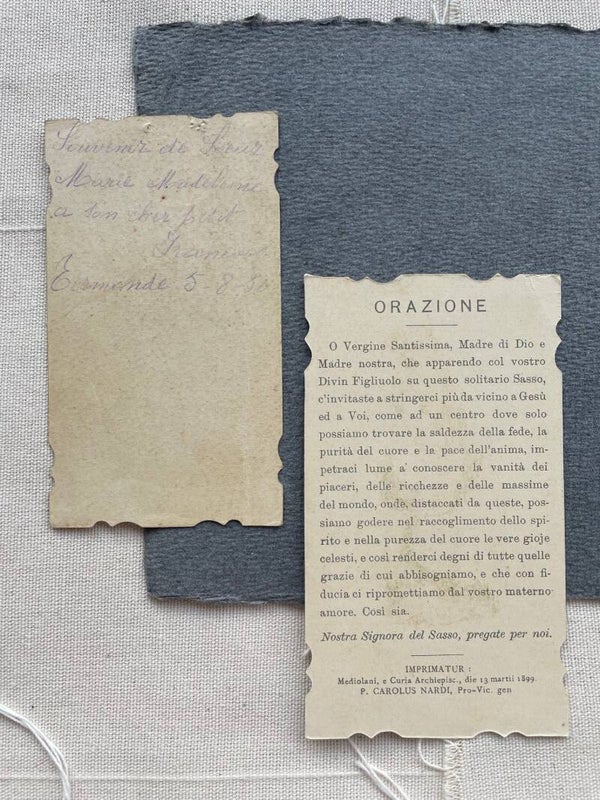 Souvenir de Sœur
Marie Madeleine
a son cher petit
Ermande 5-8-
ORAZIONE
O Vergine Santissima, Madre di Dio e
Madre nostra, che apparendo col vostro
Divin Figliuolo su questo solitario Sasso,
c'invitaste a stringerci più da vicino a Gesù
ed a Voi, come ad un centro dove solo
possiamo trovare la saldezza della fede, la
purità del cuore e la pace dell'anima, im-
petraci lume a conoscere la vanità dei
piaceri, delle ricchezze e delle massime
del mondo, onde, distaccati da queste, pos-
siamo godere nel raccoglimento dello spi-
rito e nella purezza del cuore le vere gioje
celesti, e così renderci degni di tutte quelle
grazie di cui abbisogniamo, e che con fi-
ducia ci ripromettiamo dal vostro materno
amore. Così sia.
Nostra Signora del Sasso, pregate per noi.
IMPRIMATUR :
Mediolani, e Curia Archiepisc., die 13 martii 1899.
P. CAROLUS NARDI, Pro-Vic. gen